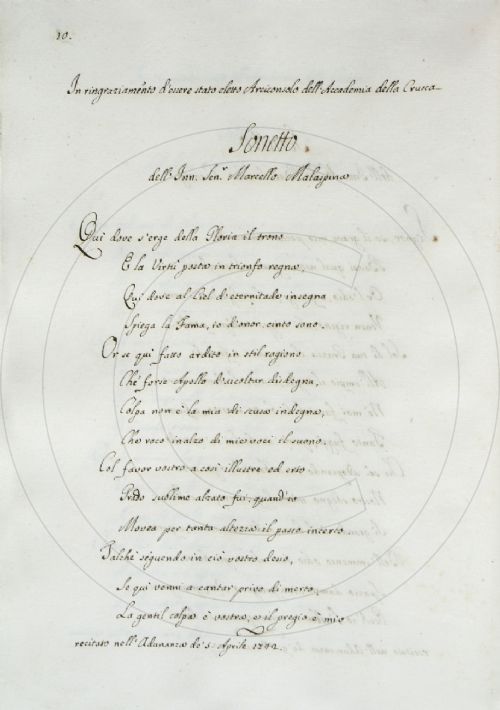 10.
In ringraziam̃ento d'essere stato eletto Arciconsolo dell'Accademia della Crusca
Sonetto
dell' Inn. Sen.r Marcello Malaspina
Qui dove s'erge della Gloria il trono
E la Virtù posta in trionfo regna,
Qui dove al Ciel d'eternitade insegna
Spiega la Fama, io d'onor cinto sono.
Or se qui fatto ardito in stil ragiono
Che forse Apollo d'ascoltar disdegna,
Colpa non è la mia di scusa indegna,
Che roco inalzo di mie voci il suono.
Col favor vostro a così illustre ed erto
Grado sublime alzato fui, quand'io
Movea per tanta altezza il passo incerto.
Talchè seguendo in ciò vostro desio,
Se qui venni a cantar privo di merto,
La gentil colpa è vostra, e il pregio è mio
recitato nell'Adunanza de' 5. Aprile 1742.